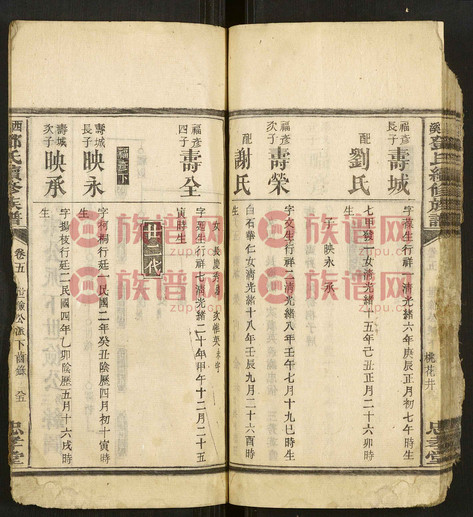 鄧氏續修族譜
桃花井
忠孝堂
福彥長子
壽城
字
生行祥一清光緒六年庚辰正月初七年時生
配
劉氏
七甲發一女清光緒十五年己丑正月二十六卯時生
子二映永承
福彥三子
壽榮
字文生行祥二清光緒八年壬午七月十九巳時生
配
謝氏
白石華仁女清光緒十八年壬辰九月二十六酉時生
福彥四子
壽全
生行祥七清光緒二十年甲午十二月二十五寅時生
福彥下
廿二代
壽城長子
映永
字荷桐行廷一民國二年癸丑陰歷四月初十寅時生
壽城次子
映承
字揚枝行廷二民國四年乙卯陰歷五月十六戌時生
鄧氏續修族譜
卷五
公派下齒錄
全
忠孝堂
族譜網
zupu.cn